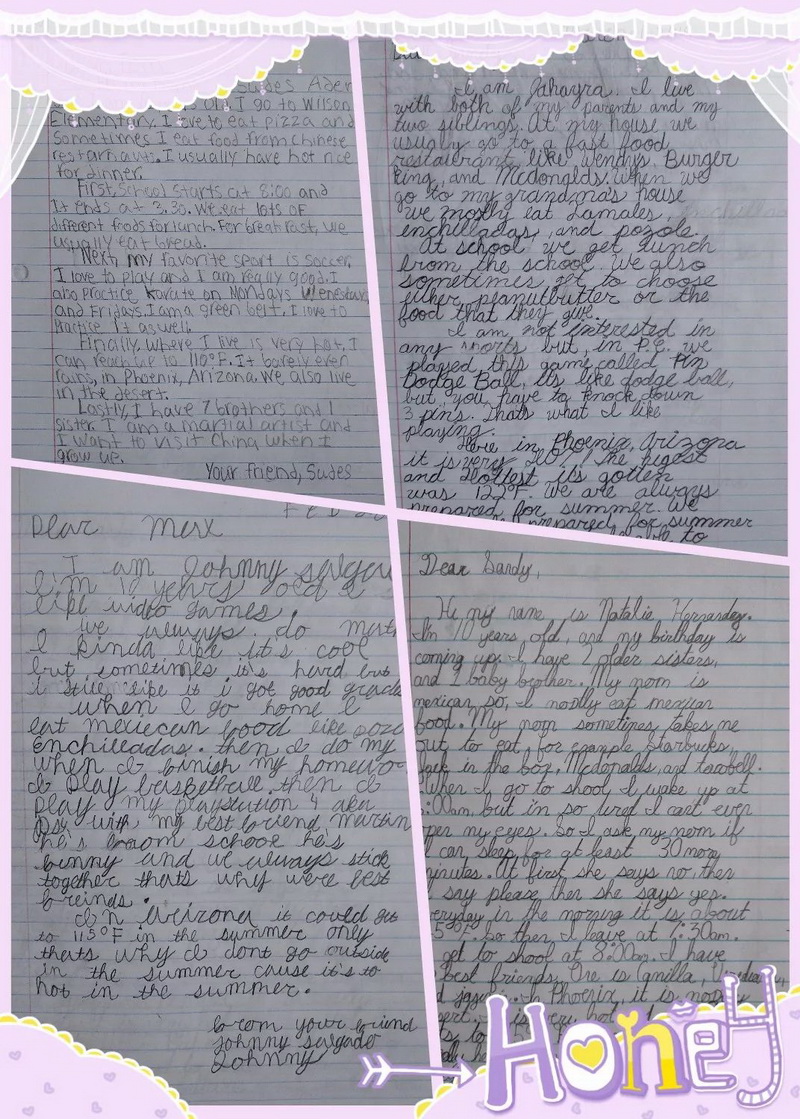 Sudes Aden
I go to Wilson
Elementary. I love to eat pizza and
Sometimes I eat food from Chinese
restarnauts. I usually have hot rice
for dinner.
First, School starts at 8:00 and
It ends at 3.30. We eat lots of
different foods for lunch. For breatfast, we
usually eat bread.
Next, my favorite sport is soccer.
I love to play and I am really good. I
also practice karate on Mondays
and Fridays. I am a green belt. I love to
Practice it as well.
Finally, where I live is very hot, I
can reach up to 110°F. It barely even
rains, in Phoenix, Arizona. We also live
in the desert.
Lastly, I have 7 brothers and 1
sister. I am a martial artist and
I want to visit China when I
grow up.
Your friend, Sudes
I am Jahayra. I live
with both of my parents and my
two siblings. At my house we
usually go to a fast food
restaurant like Wendys, Burger
King, and Mcdonalds. When we
go to my grandma's house
we mostly eat Tamales,
enchilladas, and pozole.
At school we get lunch
from the school. We also
sometimes get to choose
either peanutbutter or the
food that they give.
I am not interested in
any sports but in P.E. we
played this game called Pin
Dodge Ball, its like dodge ball,
but you have to knock down
3 pins. Thats what I like
playing.
Here in Phoenix, Arizona
it is very The higest
and Hottest its gotten
was 122°F. We are always
prepared for summer. We
prepared for summer
to
Dear Merx
I am Johnny
I'm 10 years old I
like video games.
We always do math
I kinda like it's cool
but sometimes it's hard but
i still like it i got good grade
when I go home I
eat mexiecan food like pozo
enchilladas. then I do my
when I finish my homewo
I play basketball. then I
play my playstation 4 aka
Ps4 with my best friend martin
he's from school he's
funny and we always stick
together thats why were best
freinds.
In Arizona it could get
to 115°F in the summer only
thats why I dont go outside
in the summer cause it's to
hot in the summer.
from your friend
Johnny salgado
Johnny
Dear Sandy,
Hi my name is Natalie Hernandez.
I'm 10 years old, and my birthday is
coming up. I have 2 older sisters,
and 1 baby brother. My mom is
mexican so, I mostly eat mexican
food. My mom sometimes takes me
out to eat, for example Starbucks,
Jack in the box, Mcdonalds, and tacobell.
When I go to shool I wake up at
:00am. but in so tired I cant even
open my eyes. So I ask my mom if
I can sleep for at least 30 more
minutes. At first she says no, then
I say please then she says yes.
everyday in the morning it is about
5°F. So then I leave at 7:30am.
get to shool at 8:00am. I have
best friends, One is Camilla,
In Phoenix, it is mostly
Honey